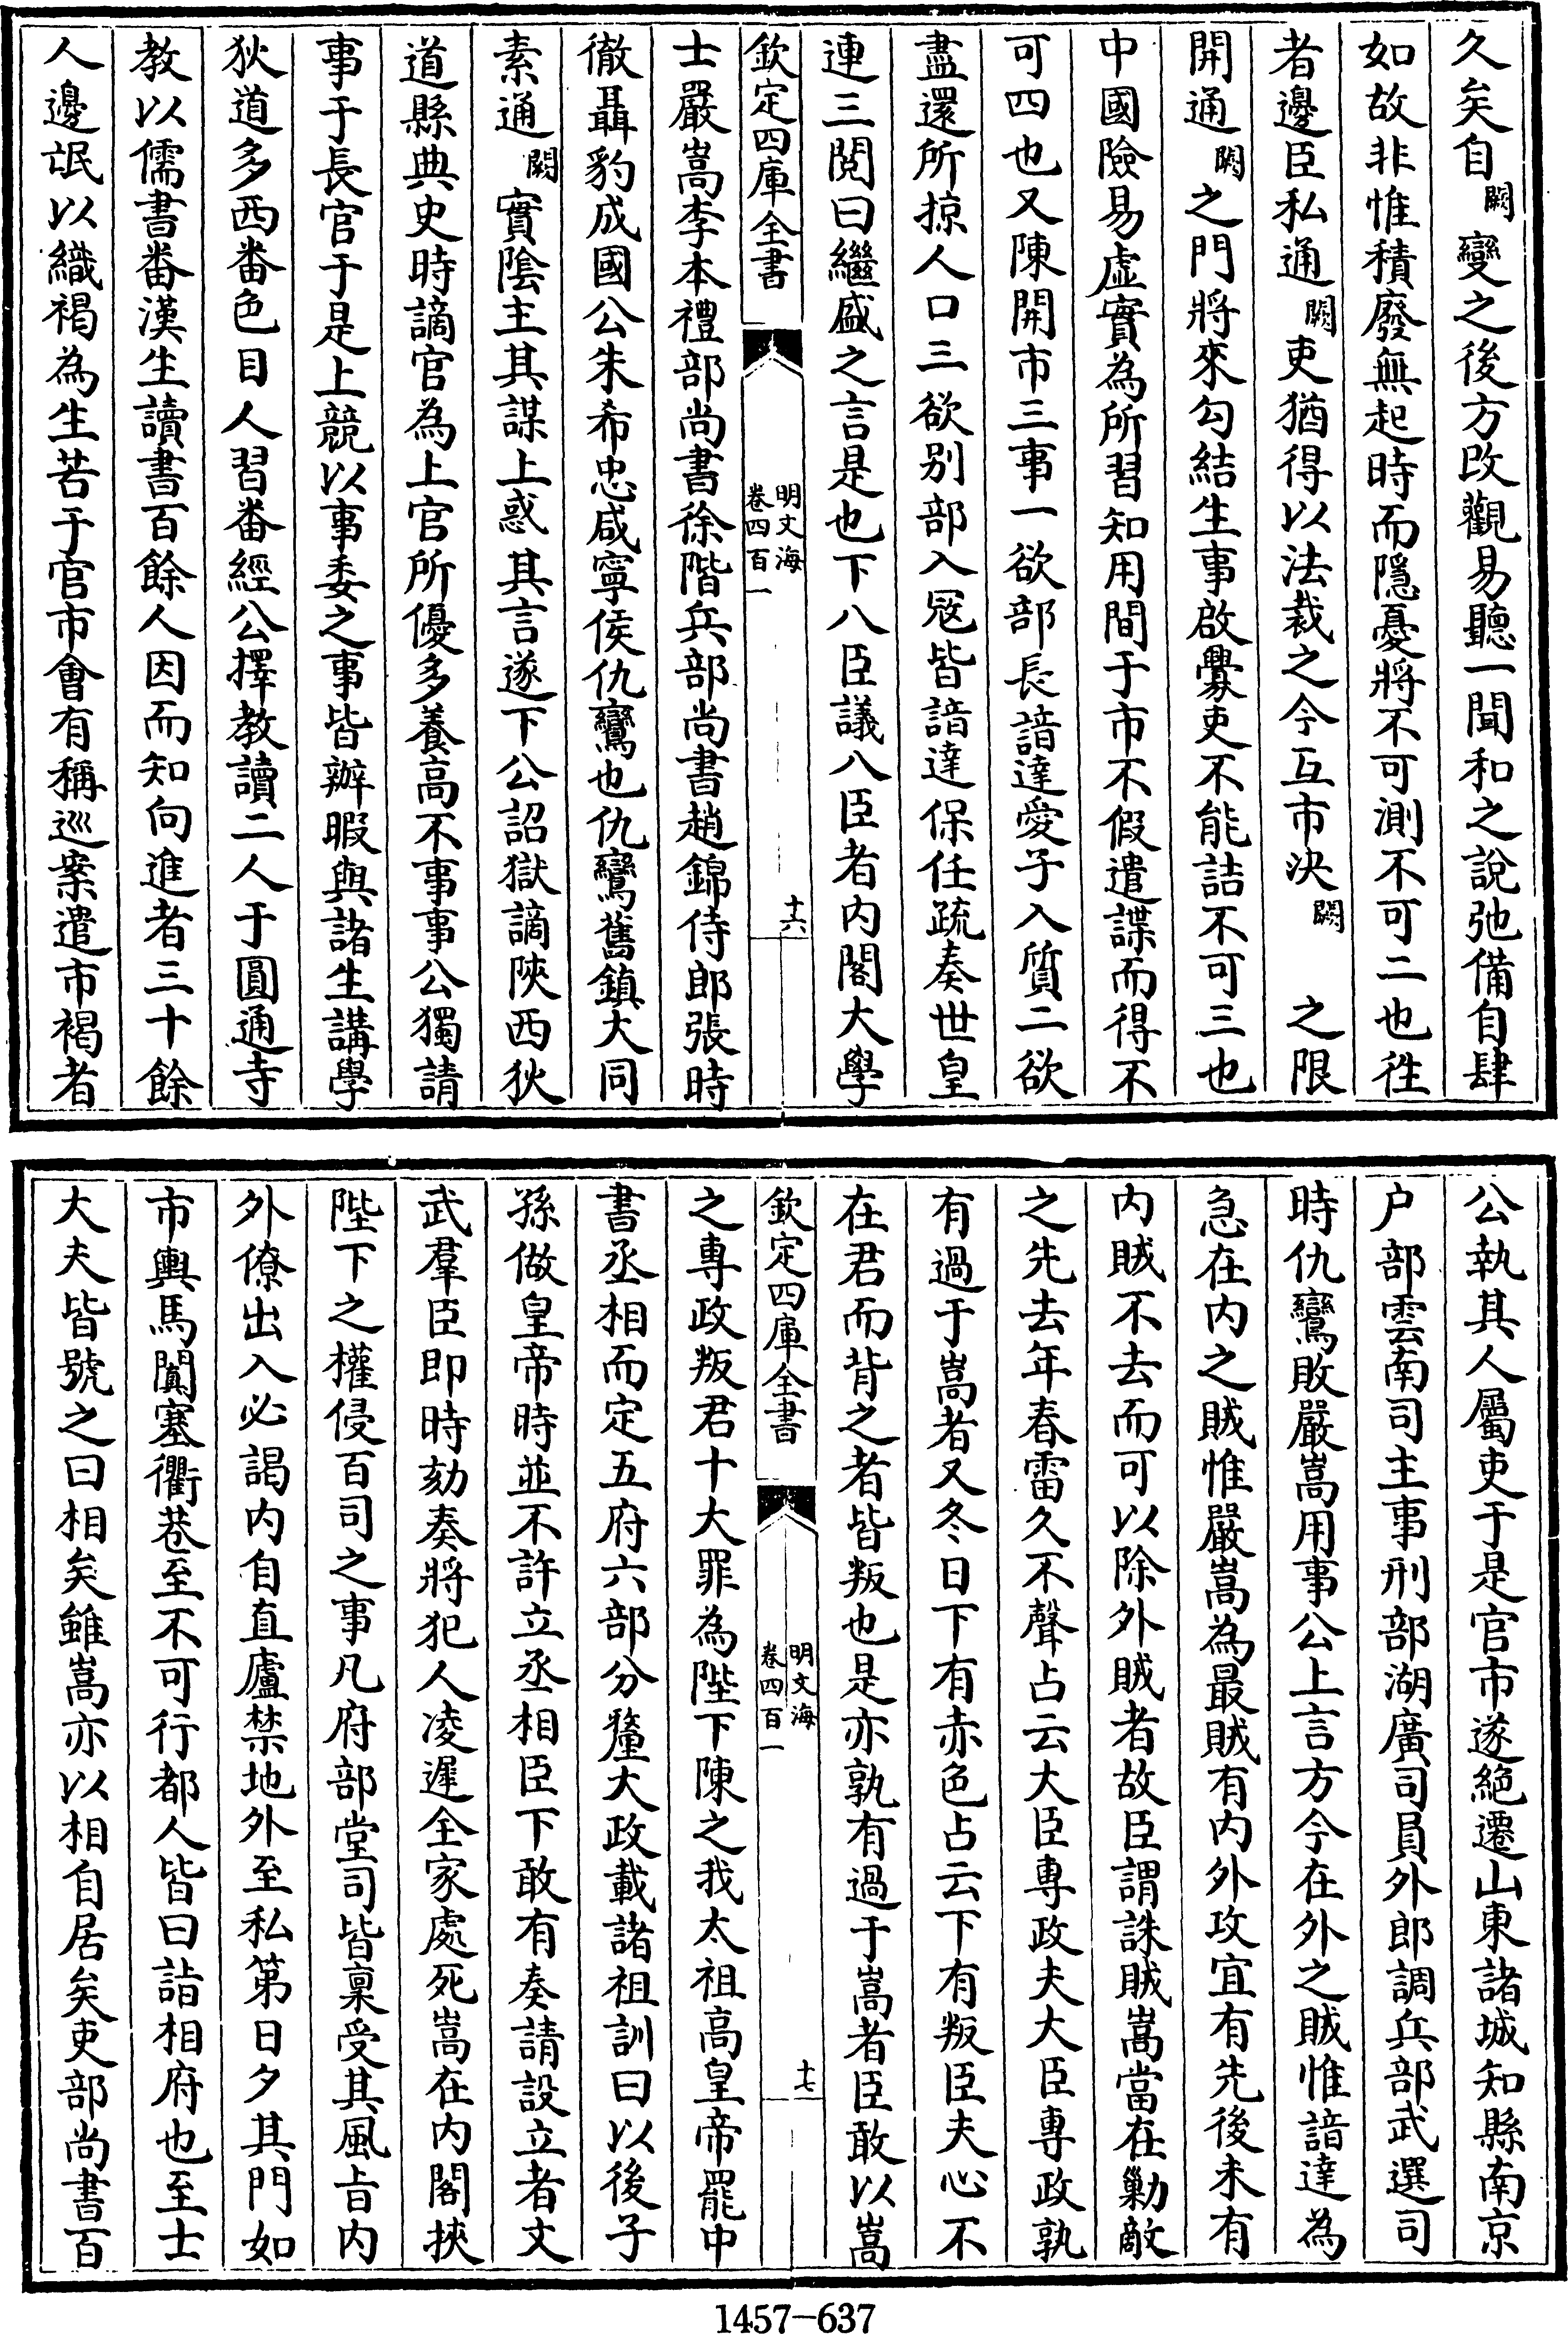 久矣自闕變之後方改觀易聽一聞和之說弛備自肆
如故非惟積廢無起時而隱憂將不可測不可二也徃
者邊臣私通闕吏猶得以法裁之今互市決闕之限
開通闕之門將來勾結生事啟釁吏不能詰不可三也
中國險易虛實為所習知用間于市不假遣諜而得不
可四也又陳開市三事一欲部長諳達愛子入質二欲
盡還所掠人口三欲别部入寇皆諳達保任疏奏世皇
連三閱曰繼盛之言是也下八臣議八臣者内閣大學
欽定四庫全書
明文海
卷四百一
十六
士嚴嵩李本禮部尚書徐階兵部尚書趙錦侍郎張時
徹聶豹成國公朱希忠咸寧侯仇鸞也仇鸞舊鎮大同
素通闕實陰主其謀上惑其言遂下公詔獄謫陜西狄
道縣典史時謫官為上官所優多養高不事事公獨請
事于長官于是上競以事委之事皆辦暇與諸生講學
狄道多西番色目人習番經公擇教讀二人于圓通寺
教以儒書番漢生讀書百餘人因而知向進者三十餘
人邊氓以織褐為生苦于官市會有稱巡案遣市褐者
公執其人屬吏于是官市遂絶遷山東諸城知縣南京
户部雲南司主事刑部湖廣司員外郎調兵部武選司
時仇鸞敗嚴嵩用事公上言方今在外之賊惟諳達為
急在内之賊惟嚴嵩為最賊有内外攻宜有先後未有
内賊不去而可以除外賊者故臣謂誅賊嵩當在勦敵
之先去年春雷久不聲占云大臣專政夫大臣專政孰
有過于嵩者又冬日下有赤色占云下有叛臣夫心不
在君而背之者皆叛也是亦孰有過于嵩者臣敢以嵩
欽定四庫全書
明文海
卷四百一
十七
之專政叛君十大罪為陛下陳之我太祖高皇帝罷中
書丞相而定五府六部分釐大政載諸祖訓曰以後子
孫做皇帝時並不許立丞相臣下敢有奏請設立者文
武羣臣即時劾奏將犯人凌遲全家處死嵩在内閣挾
陛下之權侵百司之事凡府部堂司皆稟受其風㫖内
外僚出入必謁内自直廬禁地外至私第日夕其門如
市輿馬闐塞衢巷至不可行都人皆曰詣相府也至士
大夫皆號之曰相矣雖嵩亦以相自居矣吏部尚書百
1457-637